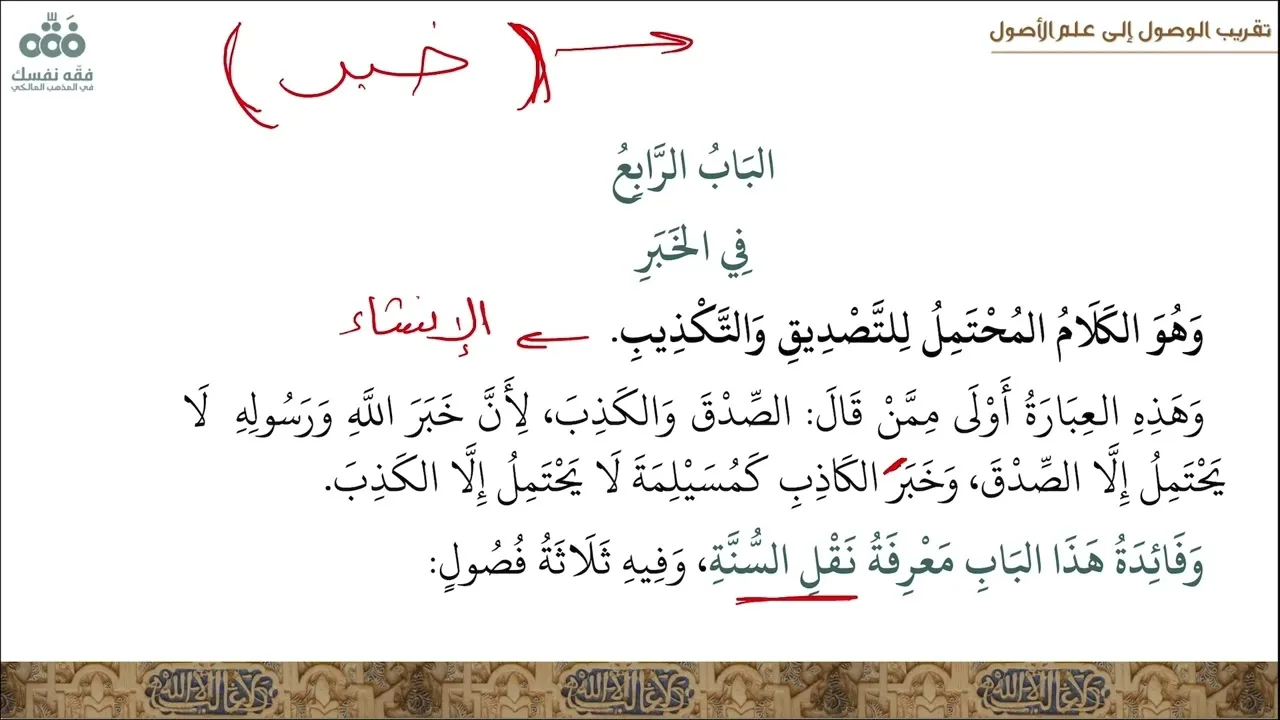 تقريب الوصول إلى علم الأصول
فقّه نفسك
في المذهب المالكي
(خبر)
البَابُ الرَّابِعُ
فِي الخَبَرِ
وَهُوَ الكَلَامُ المُحْتَمِلُ لِلتَّصْدِيقِ وَالتَّكْذِيبِ. الإنشاء
وَهَذِهِ العِبَارَةُ أَوْلَى مِمَّنْ قَالَ: الصِّدْقَ وَالكَذِبَ، لِأَنَّ خَبَرَ اللَّهِ وَرَسُولِهِ لَا
يَحْتَمِلُ إِلَّا الصِّدْقَ، وَخَبَرَ الكَاذِبِ كَمُسَيْلِمَةَ لَا يَحْتَمِلُ إِلَّا الكَذِبَ.
وَفَائِدَةُ هَذَا البَابِ مَعْرِفَةُ نَقْلِ السُّنَّةِ، وَفِيهِ ثَلَاثَةُ فُصُولٍ: